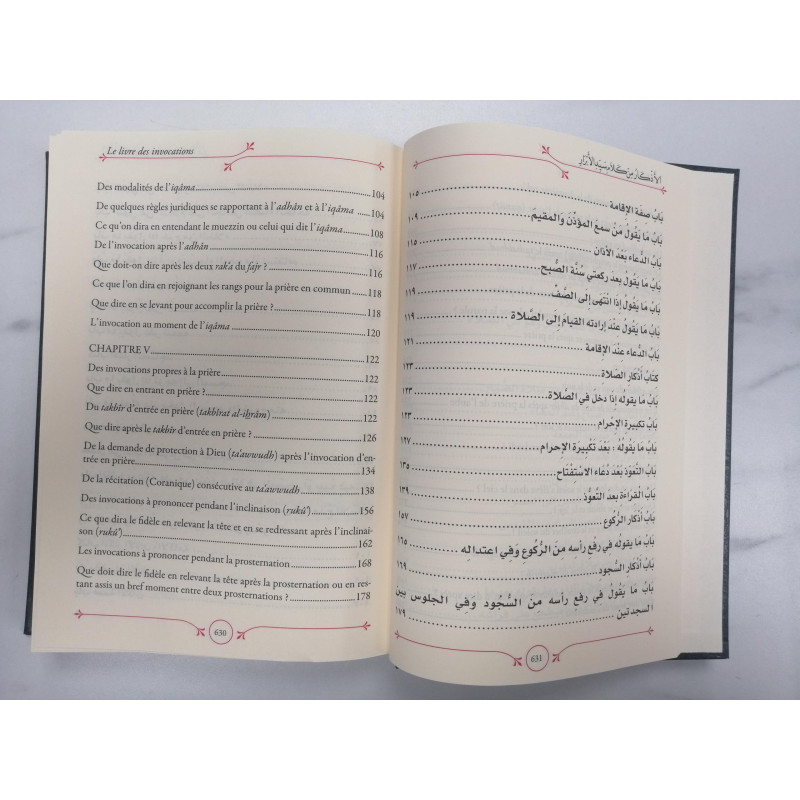 Le livre des invocations
Des modalités de l'iqâma 104
De quelques règles juridiques se rapportant à l'adhân et à l'iqâma 104
Ce qu'on dira en entendant le muezzin ou celui qui dit l'iqâma 108
De l'invocation après l'adhân 116
Que doit-on dire après les deux rak'a du fajr ? 116
Ce que l'on dira en rejoignant les rangs pour la prière en commun 118
Que dire en se levant pour accomplir la prière ? 118
L'invocation au moment de l'iqâma 120
CHAPITRE V 122
Des invocations propres à la prière 122
Que dire en entrant en prière ? 122
Du takbîr d'entrée en prière (takbîrat al-iḥrâm) 122
Que dire après le takbîr d'entrée en prière ? 126
De la demande de protection à Dieu (ta'awwudh) après l'invocation d'en-
trée en prière 134
De la récitation (Coranique) consécutive au ta'awwudh 138
Des invocations à prononcer pendant l'inclinaison (rukû') 156
Ce que dira le fidèle en relevant la tête et en se redressant après l'inclinai-
son (rukû') 162
Les invocations à prononcer pendant la prosternation 168
Que doit dire le fidèle en relevant la tête après la prosternation ou en res-
tant assis un bref moment entre deux prosternations ? 178
630
الأذكار من كلام سيد الأبرار
بَابُ صفَة الإقامة ١٠٥
بَابُ مَا يَقُولُ مَنْ سَمعَ المؤذّنَ وَالمقيمَ ١٠٩
بَابُ الدُّعاء بَعْدَ الأذان ١١٥
بَابُ مَا يَقُولُ بعدَ ركعتي سُنَّة الصُّبح ١١٧
بَابُ مَا يَقُولُ إذَا انْتَهى إلَى الصَّفّ ١١٩
بَابُ مَا يَقُولُ عنْدَ إرادته القيامَ إلَى الصَّلاة ١١٩
بَابُ الدعاء عنْدَ الإقامة ١٢١
كتابُ أذكار الصَّلاة ١٢٣
بَابُ مَا يقولُه إذَا دخلَ في الصَّلاة ١٢٣
بَابُ تكبيرة الإحْرام ١٢٣
بَابُ مَا يقولُهُ : بَعْدَ تَكْبيرَة الإحرام ١٢٧
بَابُ التَّعوّذ بَعْدَ دُعَاء الاسْتفْتاح ١٣٥
بَابُ القراءة بعدَ التَّعوُّذ ١٣٩
بَابُ أذْكار الرُّكُوع ١٥٧
بَابُ مَا يقوله في رفْع رأسه منَ الرُّكوع وَفي اعتداله ١٦٥
بَابُ أذْكار السُّجود ١٦٩
بَابُ مَا يَقولُ في رفع رأسه منَ السُّجُود وَفي الجلوس بين
السجدتين ١٧٩
631